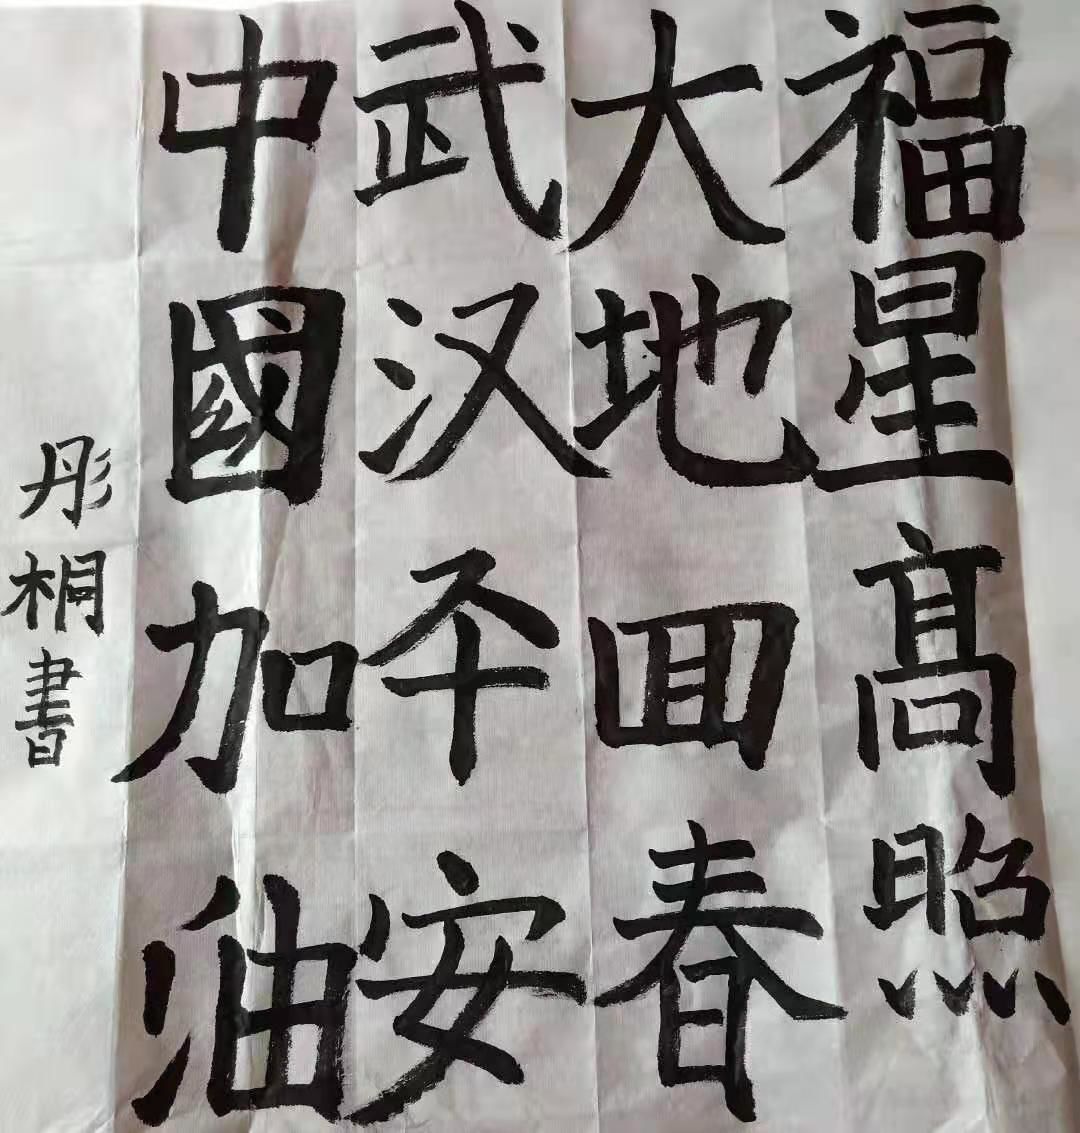 福星髙照
大地回春
武汉平安
中國加油
彤桐書